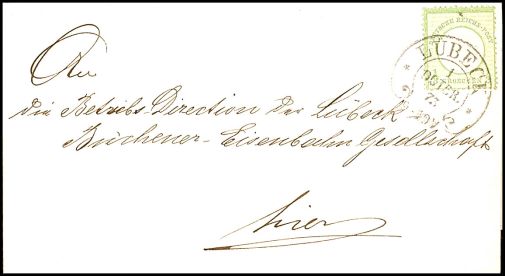 An
die Betriebs-Direction der Lübeck
Büchener-Eisenbahn Gesellschaft
hier
DEUTSCHE REICHS-POST
LÜBECK
1
OCTBR.
73